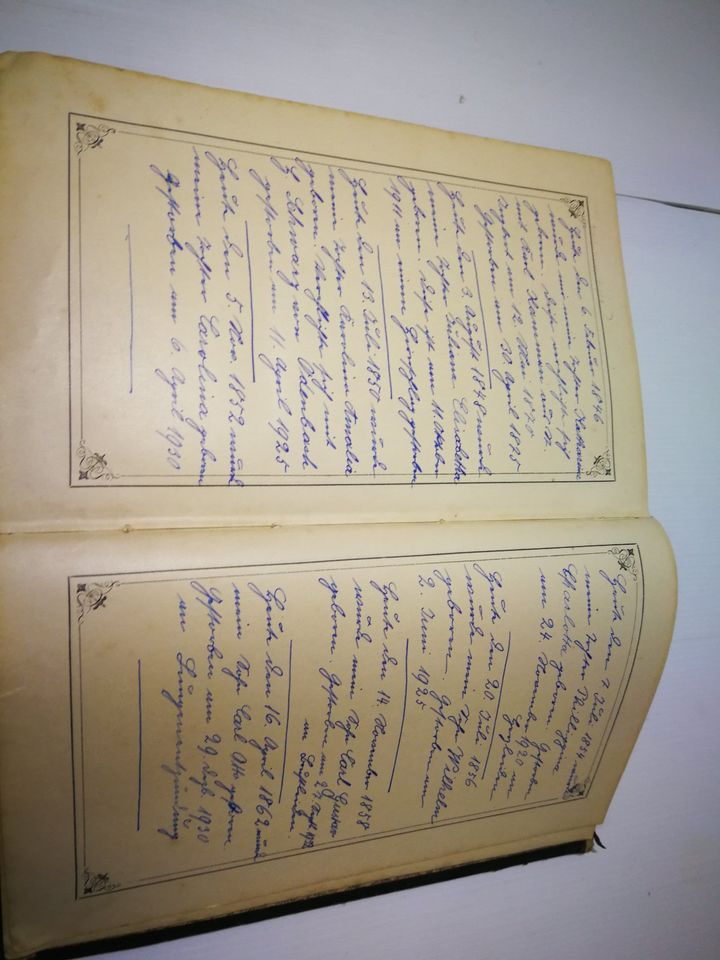 Heute den 6. Februar 1846
wurde mir mein Tochter Katharina
geboren. Diese verehelichte sich
mit Karl
am 12. Mai 1870
Gestorben am 30 April 1875
Heute den 3. August 1848 wurde
mein Tochter Juliane Elisabetha
geboren. Diese ist am 11. Oktober
1911 an einem gestorben
Heute den 13. Juli 1850 wurde
mein Tochter Karolina Amalia
geboren. Verehelichte sich mit
Schwarz von Odenbach
gestorben am 11. April 1925
Heute den 5. Nov. 1852 wurde
meine Tochter Carolina geboren
Gestorben am 6. April 1930
Heute den 7 Juli 1854 wurde
mein Tochter Philippina
Charlotta geboren. Gestorben
am 24. November 1920 in
Heute den 20. Juli 1856
wurde mein Sohn Wilhelm
geboren. Gestorben am
2. Juni 1925
Heute den 14. November 1858
wurde mein Sohn Carl Gustav
geboren. Gestorben am
in
Heute den 16. April 1862 wurde
mein Sohn Carl Otto geboren
Gestorben am 29 Sept. 1930
an Lungenentzündung